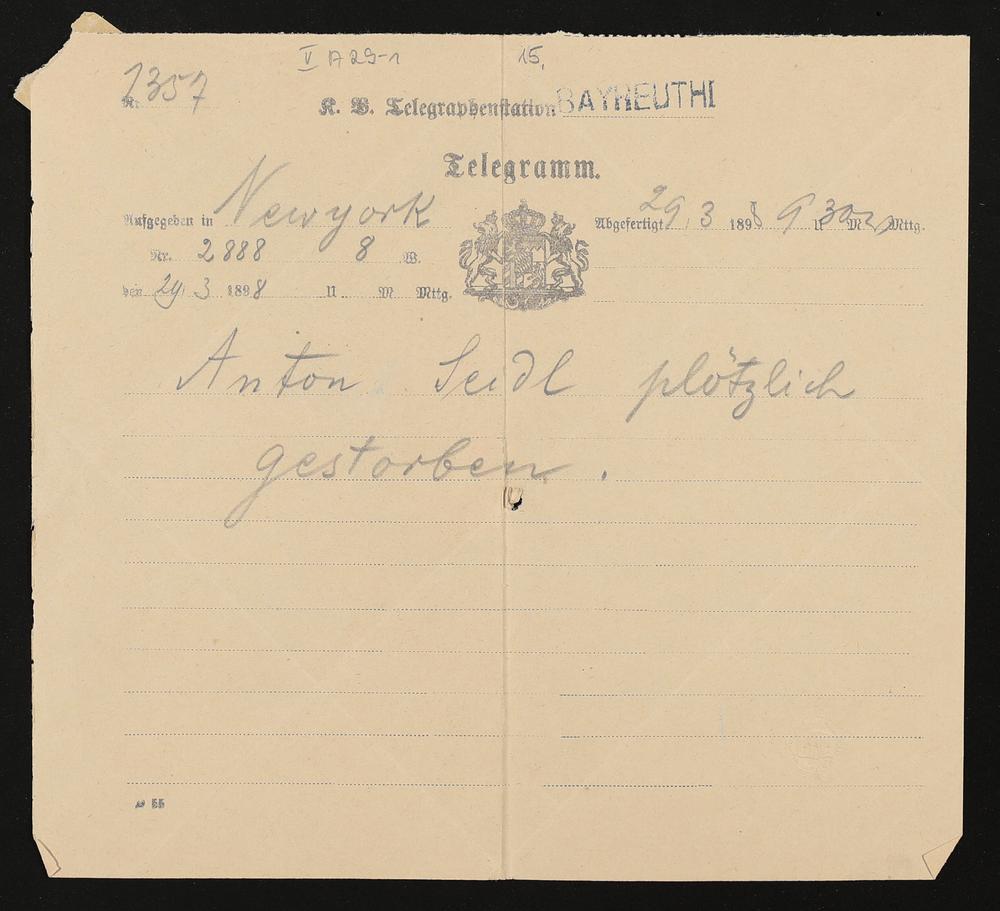 V A 29-1 15,
Nr. 1357
K. B. Telegraphenstation BAYREUTH
Telegramm.
Aufgegeben in Newyork Abgefertigt 29.3 1898 9 U 30 M Mttg.
Nr. 2888 8 W.
den 29/3 1898 U M Mttg.
Anton Seidl plötzlich
gestorben.
55